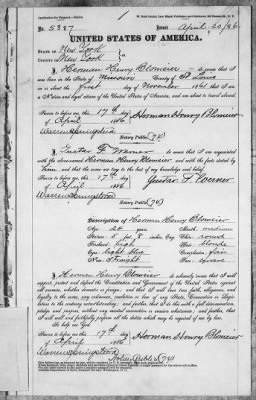 No. 5387 Issued April 20/86
UNITED STATES OF AMERICA.
STATE OF New York
COUNTY OF New York
I Herman Henry Blomeier do swear that I
was born in the State of Missouri County of St Louis
on or about the first day of November 1861 that I am
a Native and loyal citizen of the United States of America, and am about to travel abroad.
Sworn to before me, this 17th day
of April 1886 Herman Henry Blomeier
Warren Springsteed
Notary
I Gustav F. Werner do swear that I am acquainted with
the above-named Herman Henry Blomeier, and with the facts stated by
him, and that the same are true to the best of my knowledge and belief.
Sworn to before me, this 17th day
of April 1886 Gustav F. Werner
Warren Springsteed
Notary
Description of Herman Henry Blomeier
Age: 24 years Mouth: medium
Stature: 5 feet 8 inches, Eng. Chin: round
Forehead: high Hair: blonde
Eyes: light blue Complexion: fair
Nose: straight Face:
I Herman Henry Blomeier do solemnly swear that I will
support, protect and defend the Constitution and Government of the United States against
all enemies, whether domestic or foreign; and that I will bear true faith, allegiance, and
loyalty to the same, any ordinance, resolution or law of any State, Convention or Legislature
to the contrary notwithstanding; and further, that I do this with a full determination,
pledge and purpose, without any mental reservation or evasion whatsoever; and further, that
I will well and faithfully perform all the duties which may be required of me by law.
So help me God.
Sworn to before me, this 17th day
of April 1886 Herman Henry Blomeier
Warren Springsteed
Notary Public